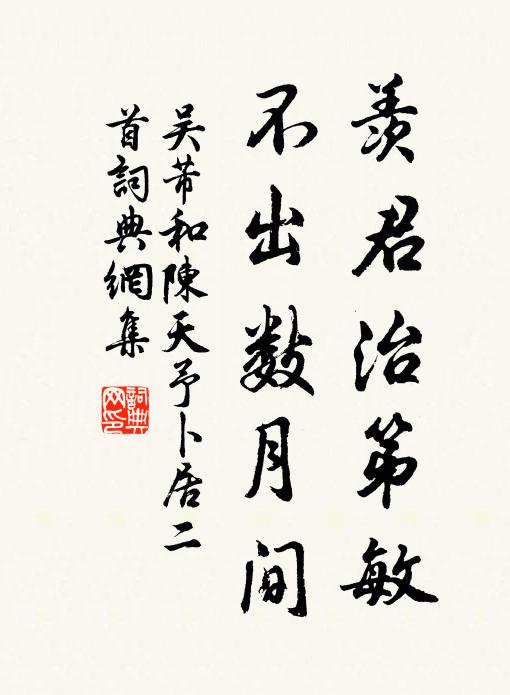 羡君治第敏
不出数月间
吴芾和陳天予卜居二
首詞典網集
詞典网印